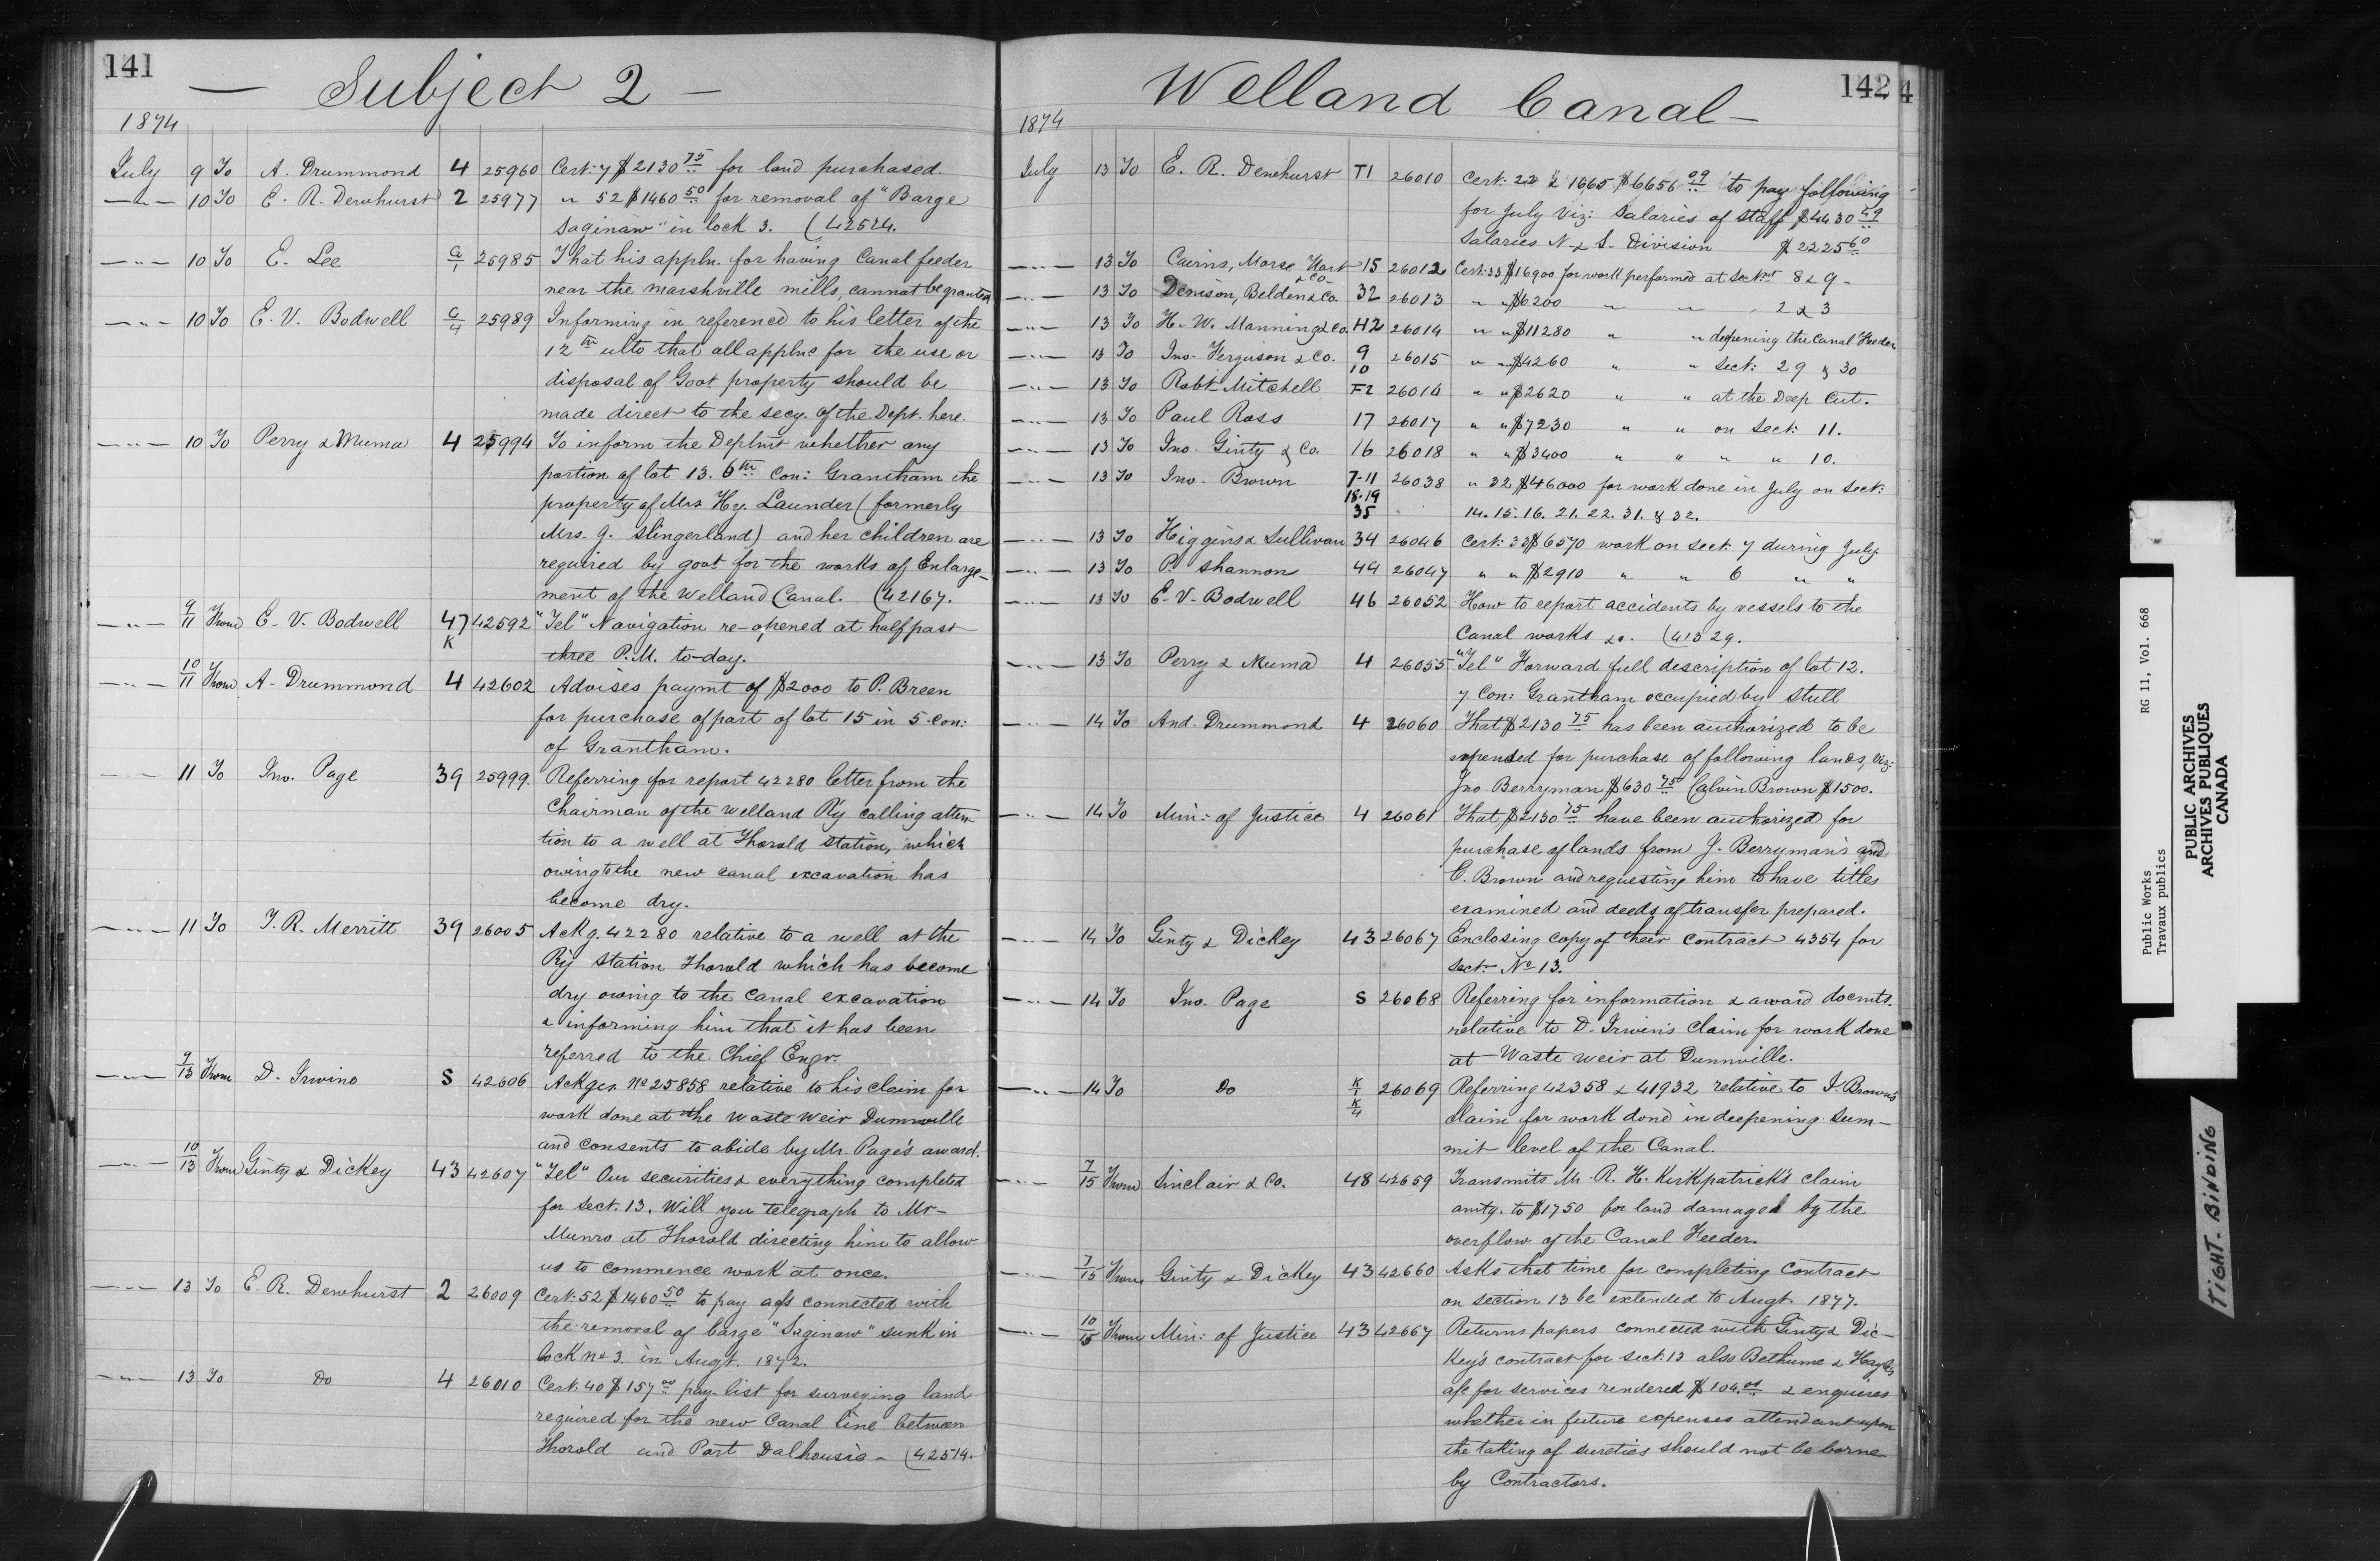 141
— Subject 2 —
1874
July 9 To A. Drummond 4 25960 Cert: 7 $2130 75 for land purchased.
—"— 10 To E. R. Dewhurst 2 25977 " 52 $1460 50 for removal of "Barge
Saginaw" in lock 3. (42524.
—"— 10 To E. Lee G/1 25985 That his appln. for having Canal feeder
near the marshville mills, cannot be granted
—"— 10 To E. V. Bodwell G/4 25989 Informing in reference to his letter of the
12th ulto that all applns for the use or
disposal of Govt property should be
made direct to the secy. of the Dept. here.
—"— 10 To Perry & Muma 4 25994 To inform the Deptmt whether any
portion of lot 13. 6th Con: Grantham the
property of Mrs Hy. Launder (formerly
Mrs. J. Slingerland) and her children are
required by govt for the works of Enlarge-
ment of the Welland Canal. (42167.
—"— 9/11 From E. V. Bodwell 47 K 42592 "Tel" Navigation re-opened at half past
three P.M. to-day.
—"— 10/11 From A. Drummond 4 42602 Advises paymt of $2000 to P. Breen
for purchase of part of lot 15 in 5 Con:
of Grantham.
—"— 11 To Jno. Page 39 25999. Referring for report 42280 letter from the
Chairman of the Welland Ry calling atten-
tion to a well at Thorold station, which
owing to the new canal excavation has
become dry.
—"— 11 To T. R. Merritt 39 26005 Ackg. 42280 relative to a well at the
Ry station Thorold which has become
dry owing to the canal excavation
& informing him that it has been
referred to the Chief Engr.
—"— 9/13 From D. Irvine S 42606 Ackges No 25858 relative to his claim for
work done at the Waste Weir Dunnville
and consents to abide by Mr. Page's award.
—"— 10/13 From Ginty & Dickey 43 42607 "Tel" Our securities & everything completed
for sect. 13. Will you telegraph to Mr-
Munro at Thorold directing him to allow
us to commence work at once.
—"— 13 To E. R. Dewhurst 2 26009 Cert: 52 $1460 50 to pay a/cs connected with
the removal of barge "Saginaw" sunk in
lock No 3. in Augt. 1872.
—"— 13 To Do 4 26010 Cert: 40 $157 00 pay-list for surveying land
required for the new Canal line between
Thorold and Port Dalhousie - (42514.
142
4
Welland Canal —
1874
July 13 To E. R. Dewhurst T1 26010 Cert: 22 & 1665 $6656 09 to pay following
for July Viz: Salaries of staff $4430 49
Salaries N. & S. Division $2225 60
—"— 13 To Cairns, Morse, Hart & Co- 15 26012 Cert: 33 $16900 for work performed at Sect: 8 & 9 -
—"— 13 To Denison, Belden & Co. 32 26013 " " $6200 " " 2 & 3
—"— 13 To H. W. Manning & Co. H2 26014 " " $11280 " " deepening the Canal Feeder
—"— 13 To Jno. Ferguson & Co. 9 10 26015 " " $4260 " " Sect: 29 & 30
—"— 13 To Robt Mitchell F2 26016 " " $2620 " " at the Deep Cut.
—"— 13 To Paul Ross 17 26017 " " $7230 " " on Sect: 11.
—"— 13 To Jno. Ginty & Co. 16 26018 " " $3400 " " " " 10.
—"— 13 To Jno. Brown 7-11 26038 " 32 $46000 for work done in July on Sect:
18-19 35 14. 15. 16. 21. 22. 31. & 32.
—"— 13 To Higgins & Sullivan 34 26046 Cert: 33 $6570 work on Sect: 7 during July
—"— 13 To P. Shannon 49 26047 " " $2910 " " 6 " "
—"— 13 To E. V. Bodwell 46 26052 How to report accidents by vessels to the
Canal works &c. (41329.
—"— 13 To Perry & Muma 4 26055 "Tel" Forward full description of lot 12.
7 Con: Grantham occupied by Stull
—"— 14 To And. Drummond 4 26060 That $2130 75 has been authorized to be
expended for purchase of following lands, viz:
Jno Berryman $630 75 Calvin Brown $1500.
—"— 14 To Min: of Justice 4 26061 That $2130 75 have been authorized for
purchase of lands from J. Berryman's and
C. Brown and requesting him to have titles
examined and deeds of transfer prepared.
—"— 14 To Ginty & Dickey 43 26067 Enclosing copy of their contract 4354 for
Sect: No 13.
—"— 14 To Jno. Page S 26068 Referring for information & award docmts.
relative to D. Irwin's claim for work done
at Waste weir at Dunnville.
—"— 14 To Do K/1 K/4 26069 Referring 42358 & 41932 relative to J. Brown's
claim for work done in deepening Sum-
mit level of the Canal.
—"— 7/15 From Sinclair & Co. 48 42659 Transmits Mr. R. H. Kirkpatrick's claim
amtg. to $1750 for land damaged by the
overflow of the Canal Feeder.
—"— 7/15 From Ginty & Dickey 43 42660 Asks that time for completing contract
on section 13 be extended to Augt. 1877.
—"— 10/15 From Min: of Justice 43 42667 Returns papers connected with Ginty & Dic-
key's contract for sect. 13 also Bethune &
a/c for services rendered $104 & enquires
whether in future expenses attendant upon
the taking of sureties should not be borne
by Contractors.
Public Works RG 11, Vol. 668
Travaux publics
PUBLIC ARCHIVES
ARCHIVES PUBLIQUES
CANADA
TIGHT BINDING